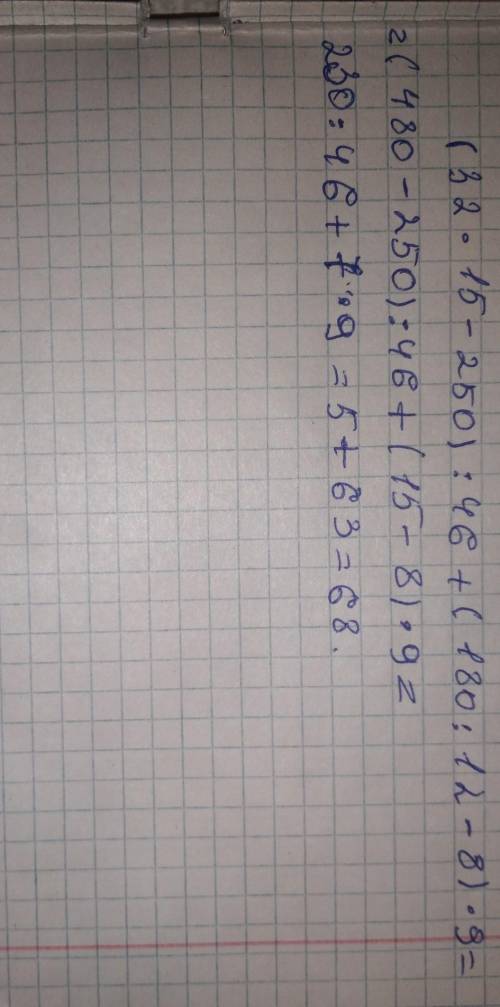 (32·15-250):46+(180:12-8)·9=
=(480-250):46+(15-8)·9=
230:46+7·9=5+63=68.